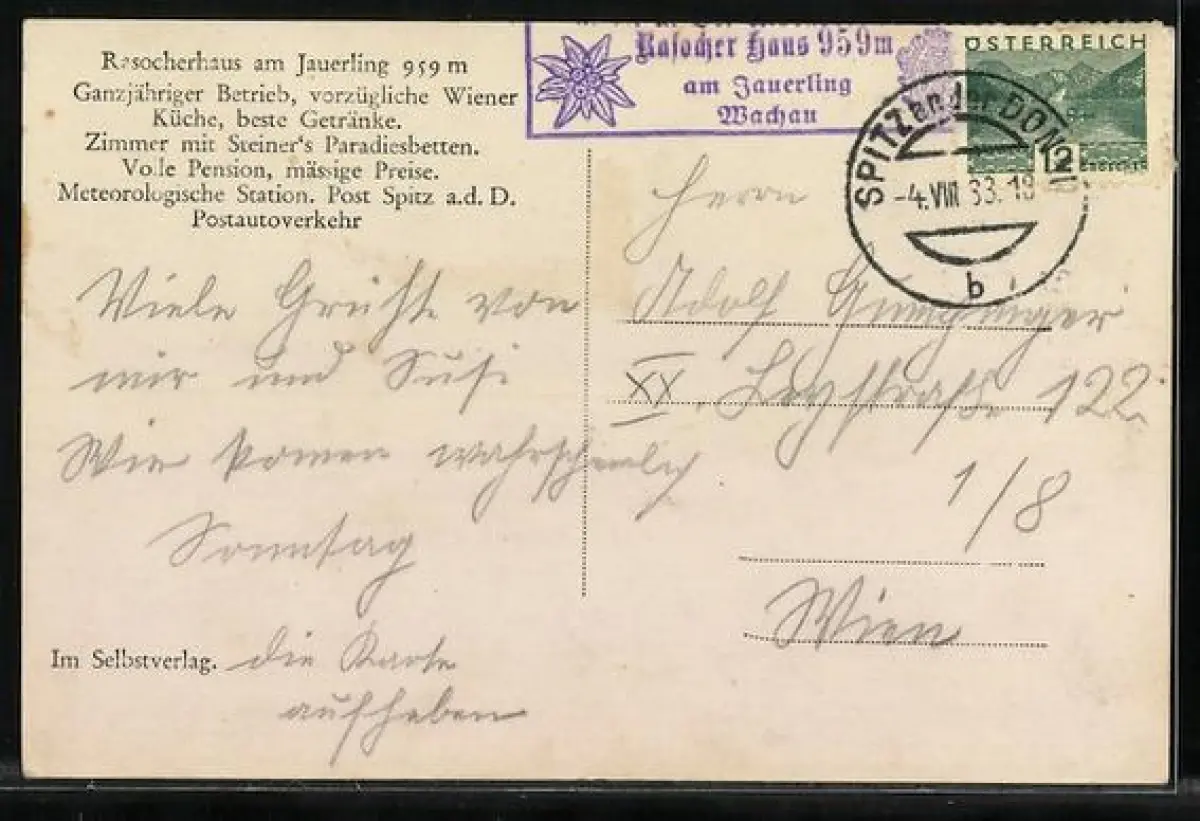 Rasocherhaus am Jauerling 959 m
Ganzjähriger Betrieb, vorzügliche Wiener
Küche, beste Getränke.
Zimmer mit Steiner's Paradiesbetten.
Volle Pension, mässige Preise.
Meteorologische Station. Post Spitz a.d. D.
Postautoverkehr
Rasocher Haus 959m
am Jauerling
Wachau
ÖSTERREICH
12
GROSCHEN
SPITZ an der DONAU
-4.VIII 33.18
b
Viele Grüße von
mir und Susi
Wir komen wahrscheinlich
Sonntag
die Karte
aufheben
Im Selbstverlag.
Herrn
Adolf
XX. 122
1/8
Wien